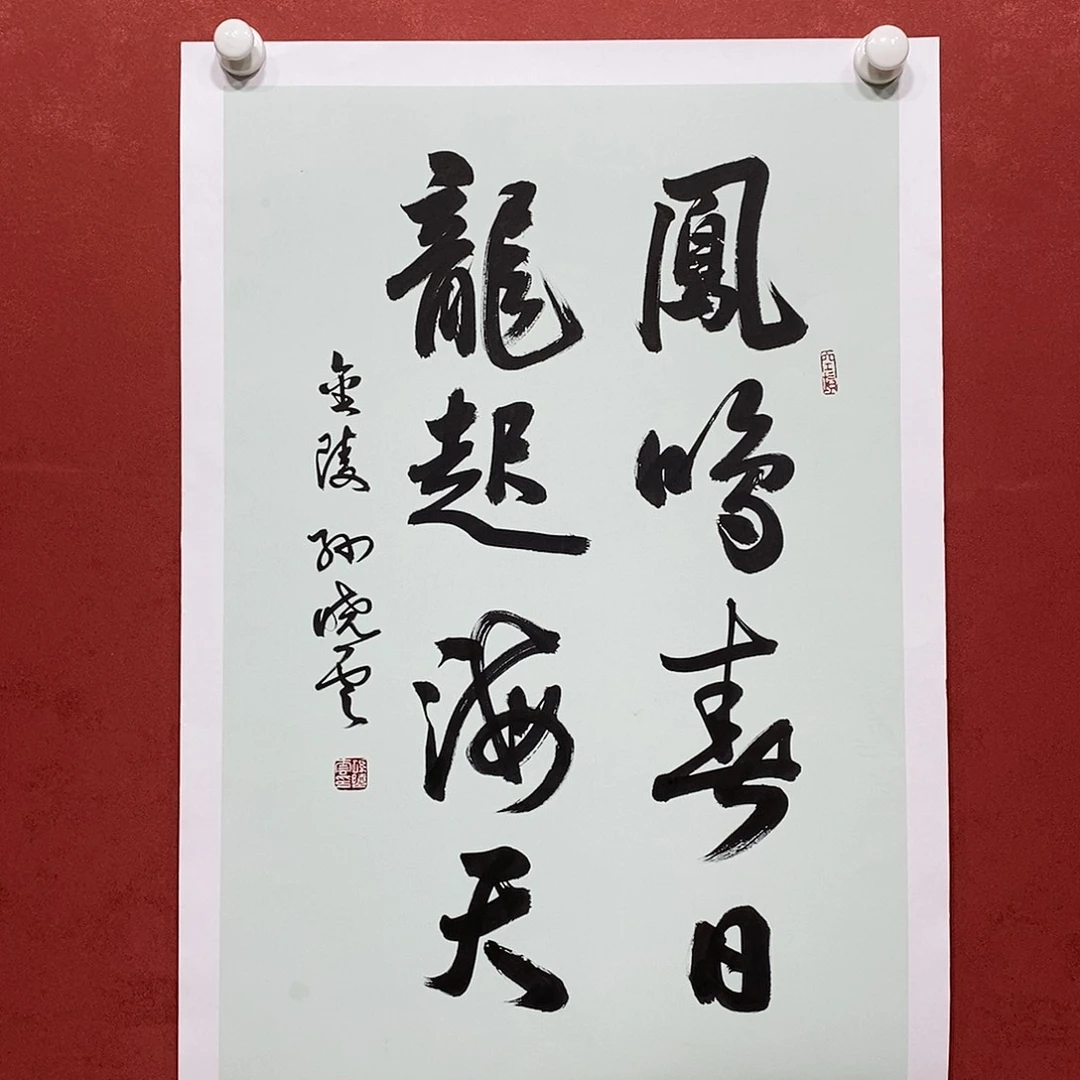 鳳鳴春日
龍起海天
金陵 孙晓云